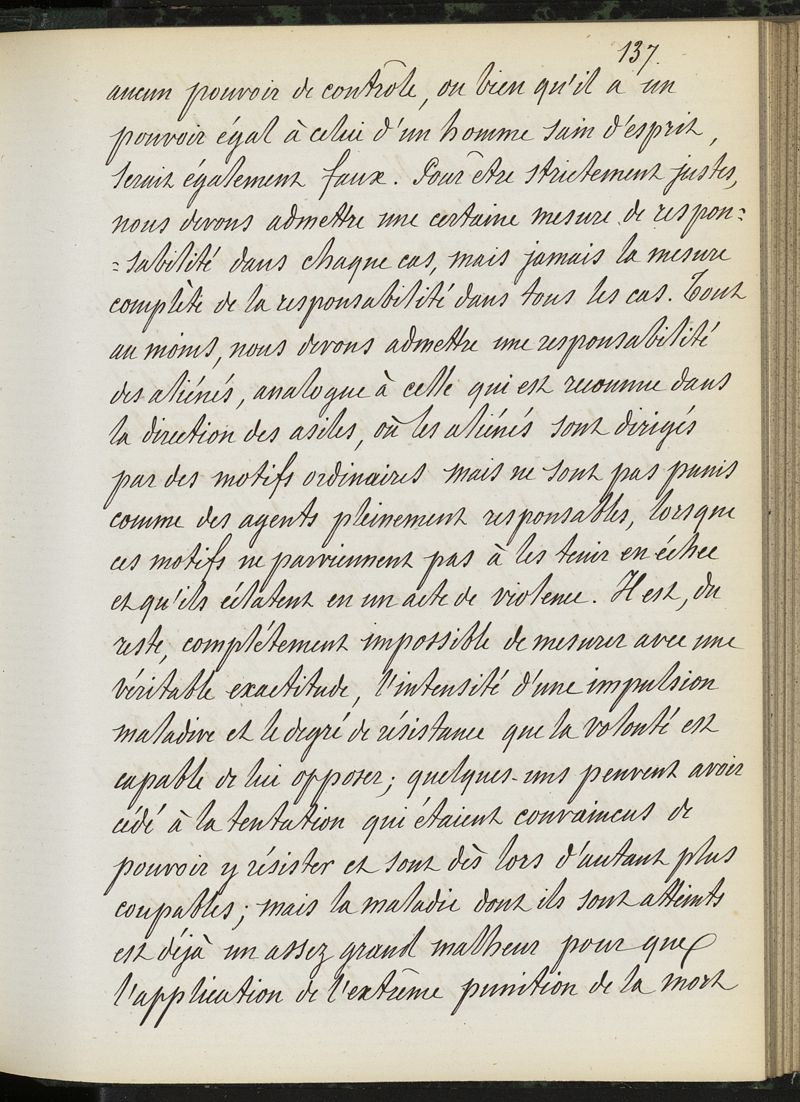 137.
aucun pouvoir de contrôle, ou bien qu'il a un
pouvoir égal à celui d'un homme sain d'esprit,
serait également faux. Pour être strictement justes,
nous devons admettre une certaine mesure de respon=
=sabilité dans chaque cas, mais jamais la mesure
complète de la responsabilité dans tous les cas. Tout
au moins, nous devons admettre une responsabilité
des aliénés, analogue à celle qui est reconnue dans
la direction des asiles, où les aliénés sont dirigés
par des motifs ordinaires mais ne sont pas punis
comme des agents pleinement responsables, lorsque
ces motifs ne parviennent pas à les tenir en échec
et qu'ils éclatent en un acte de violence. Il est, du
reste, complétement impossible de mesurer avec une
véritable exactitude, l'intensité d'une impulsion
maladive et le degré de résistance que la volonté est
capable de lui opposer; quelques-uns peuvent avoir
cédé à la tentation qui étaient convaincus de
pouvoir y résister et sont dès lors d'autant plus
coupables; mais la maladie dont ils sont atteints
est déjà un assez grand malheur pour que
l'application de l'extrême punition de la mort